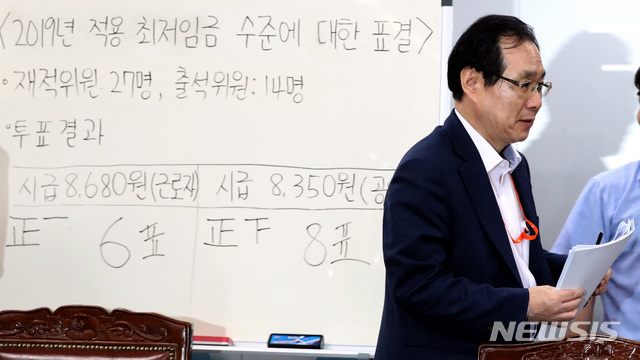 <2019년 적용 최저임금 수준에 대한 표결>
· 재적위원 27명, 출석위원: 14명
· 투표결과
시급 8,680원(근로자) 시급 8,350원(공
正一 6표 正下 8표
NEWSIS